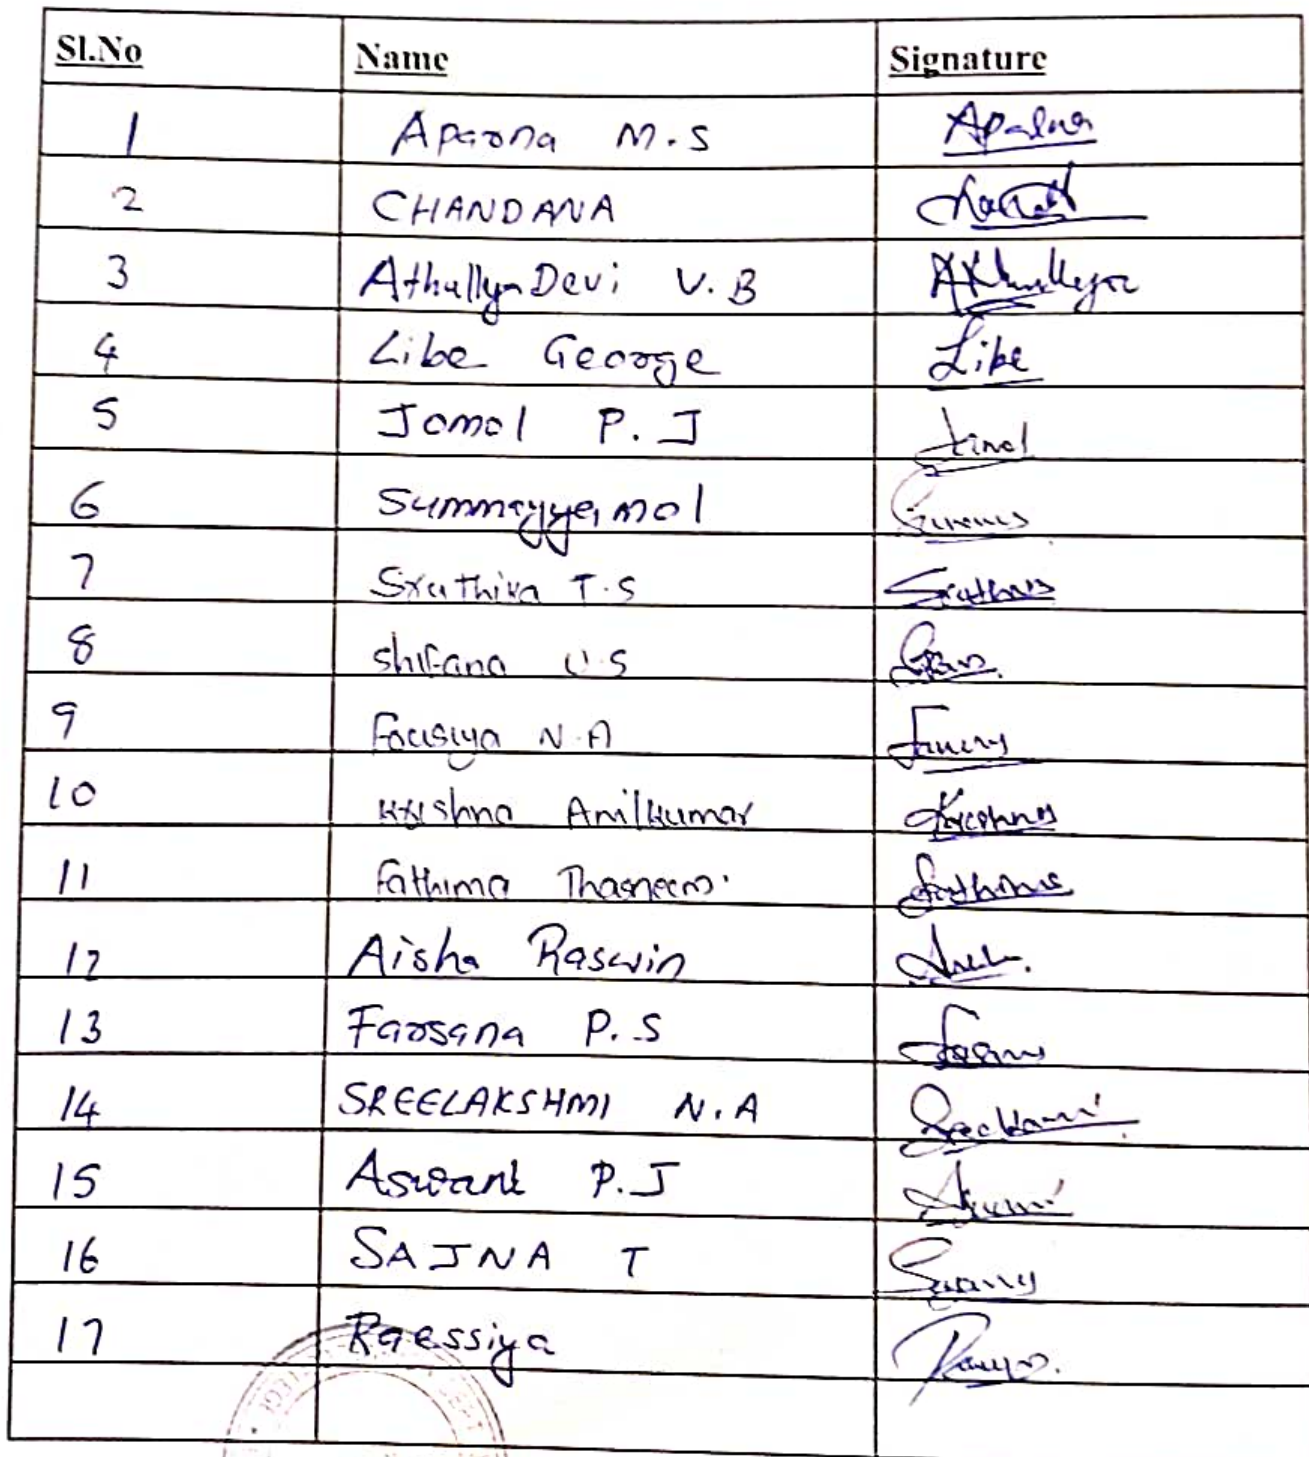 Sl.No Name Signature
1 Aparna M.S Aparna
2 CHANDANA
3 Athullya Devi V.B Athullya
4 Libe George Libe
5 Jomol P.J Jomol
6 Summayya mol
7 Sruthiva T.S
8 Shifana U.S
9 Fousiya N.A
10 Krishna Anilkumar Krishna
11 Fathima Thasneem. Fathima
12 Aisha Raswin
13 Farsana P.S
14 SREELAKSHMI N.A
15 Aswani P.J
16 SAJNA T
17 Raessiya